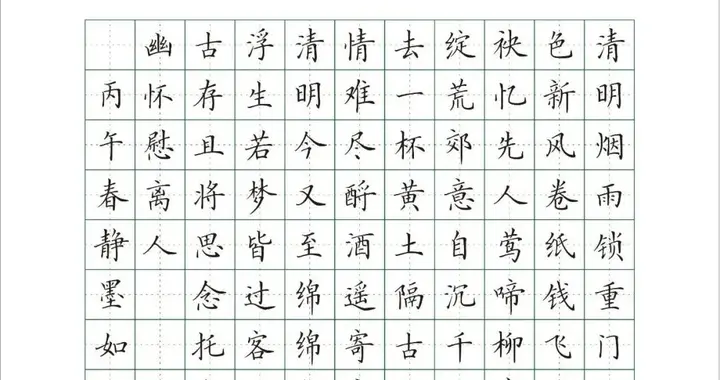 清明烟雨锁重门
色新风卷纸钱飞
袂忆先人莺啼柳
绽荒郊意自沉千
去一杯黄土隔古
情难尽酹酒遥寄
清明今又至绵绵
浮生若梦皆过客
古存且将思念托
幽怀慰离人
丙午春静墨如